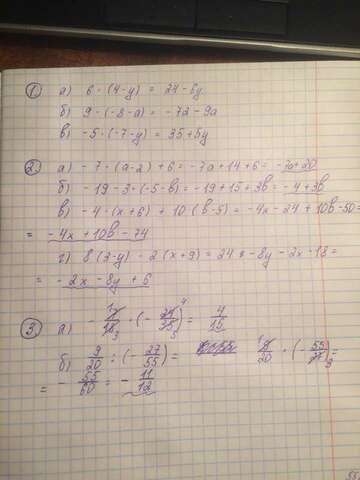 ① а) 6 · (4 - y) = 24 - 6y
б) 9 · (-8 - a) = -72 - 9a
в) -5 · (-7 - y) = 35 + 5y
② а) -7 · (a - 2) + 6 = -7a + 14 + 6 = -7a + 20
б) -19 - 3 · (-5 - b) = -19 + 15 + 3b = -4 + 3b
в) -4 · (x + 6) + 10 (b - 5) = -4x - 24 + 10b - 50 =
= -4x + 10b - 74
г) 8 (3 - y) - 2 (x + 9) = 24 - 8y - 2x - 18 =
= -2x - 8y + 6
③ а)
б) 9/20 : (-27/55) = 9/20 · (-55/27) =
= -55/60 = -11/12